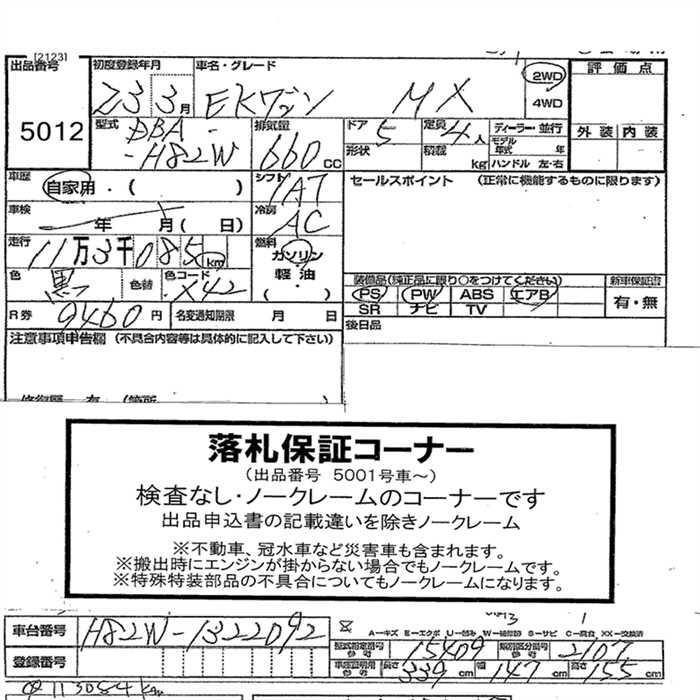 [2123]
出品番号 5012
初度登録年月 Z3 3月
車名・グレード EKワゴン MX
2WD
4WD
評価点
外装 内装
型式 DBA-H82W
排気量 660 CC
ドア 5
定員 4人
ディーラー・並行
形状
積載 kg
モデル年式 年
ハンドル 左・右
車歴 自家用・( )
シフト IAT
セールスポイント (正常に機能するものに限ります)
車検 年 月( 日)
冷房 AC
走行 11万3千085km
燃料 ガソリン 軽・油 ( ・ )
色 黒 色替 色コード X42
装備品(純正品に限り○をつけてください)
PS PW ABS エアB
SR ナビ TV
新車保証書 有・無
R券 9460円
名変通知期限 月 日
後日品
注意事項申告欄 (不具合内容等は具体的に記入して下さい)
落札保証コーナー
(出品番号 5001号車~)
検査なし・ノークレームのコーナーです
出品申込書の記載違いを除きノークレーム
※不動車、冠水車など災害車も含まれます。
※搬出時にエンジンが掛からない場合でもノークレームです。
※特殊特装部品の不具合についてもノークレームになります。
車台番号 H82W-1322092
A-キズ E-エクボ U-凹み W-補修跡 S-サビ C-腐食 XX-交換済
型式指定番号 参考 15409 類別区分番号 参考 2107
登録番号
車庫証明用 参考 長さ 339cm 幅 147cm 高さ 155cm
113084km